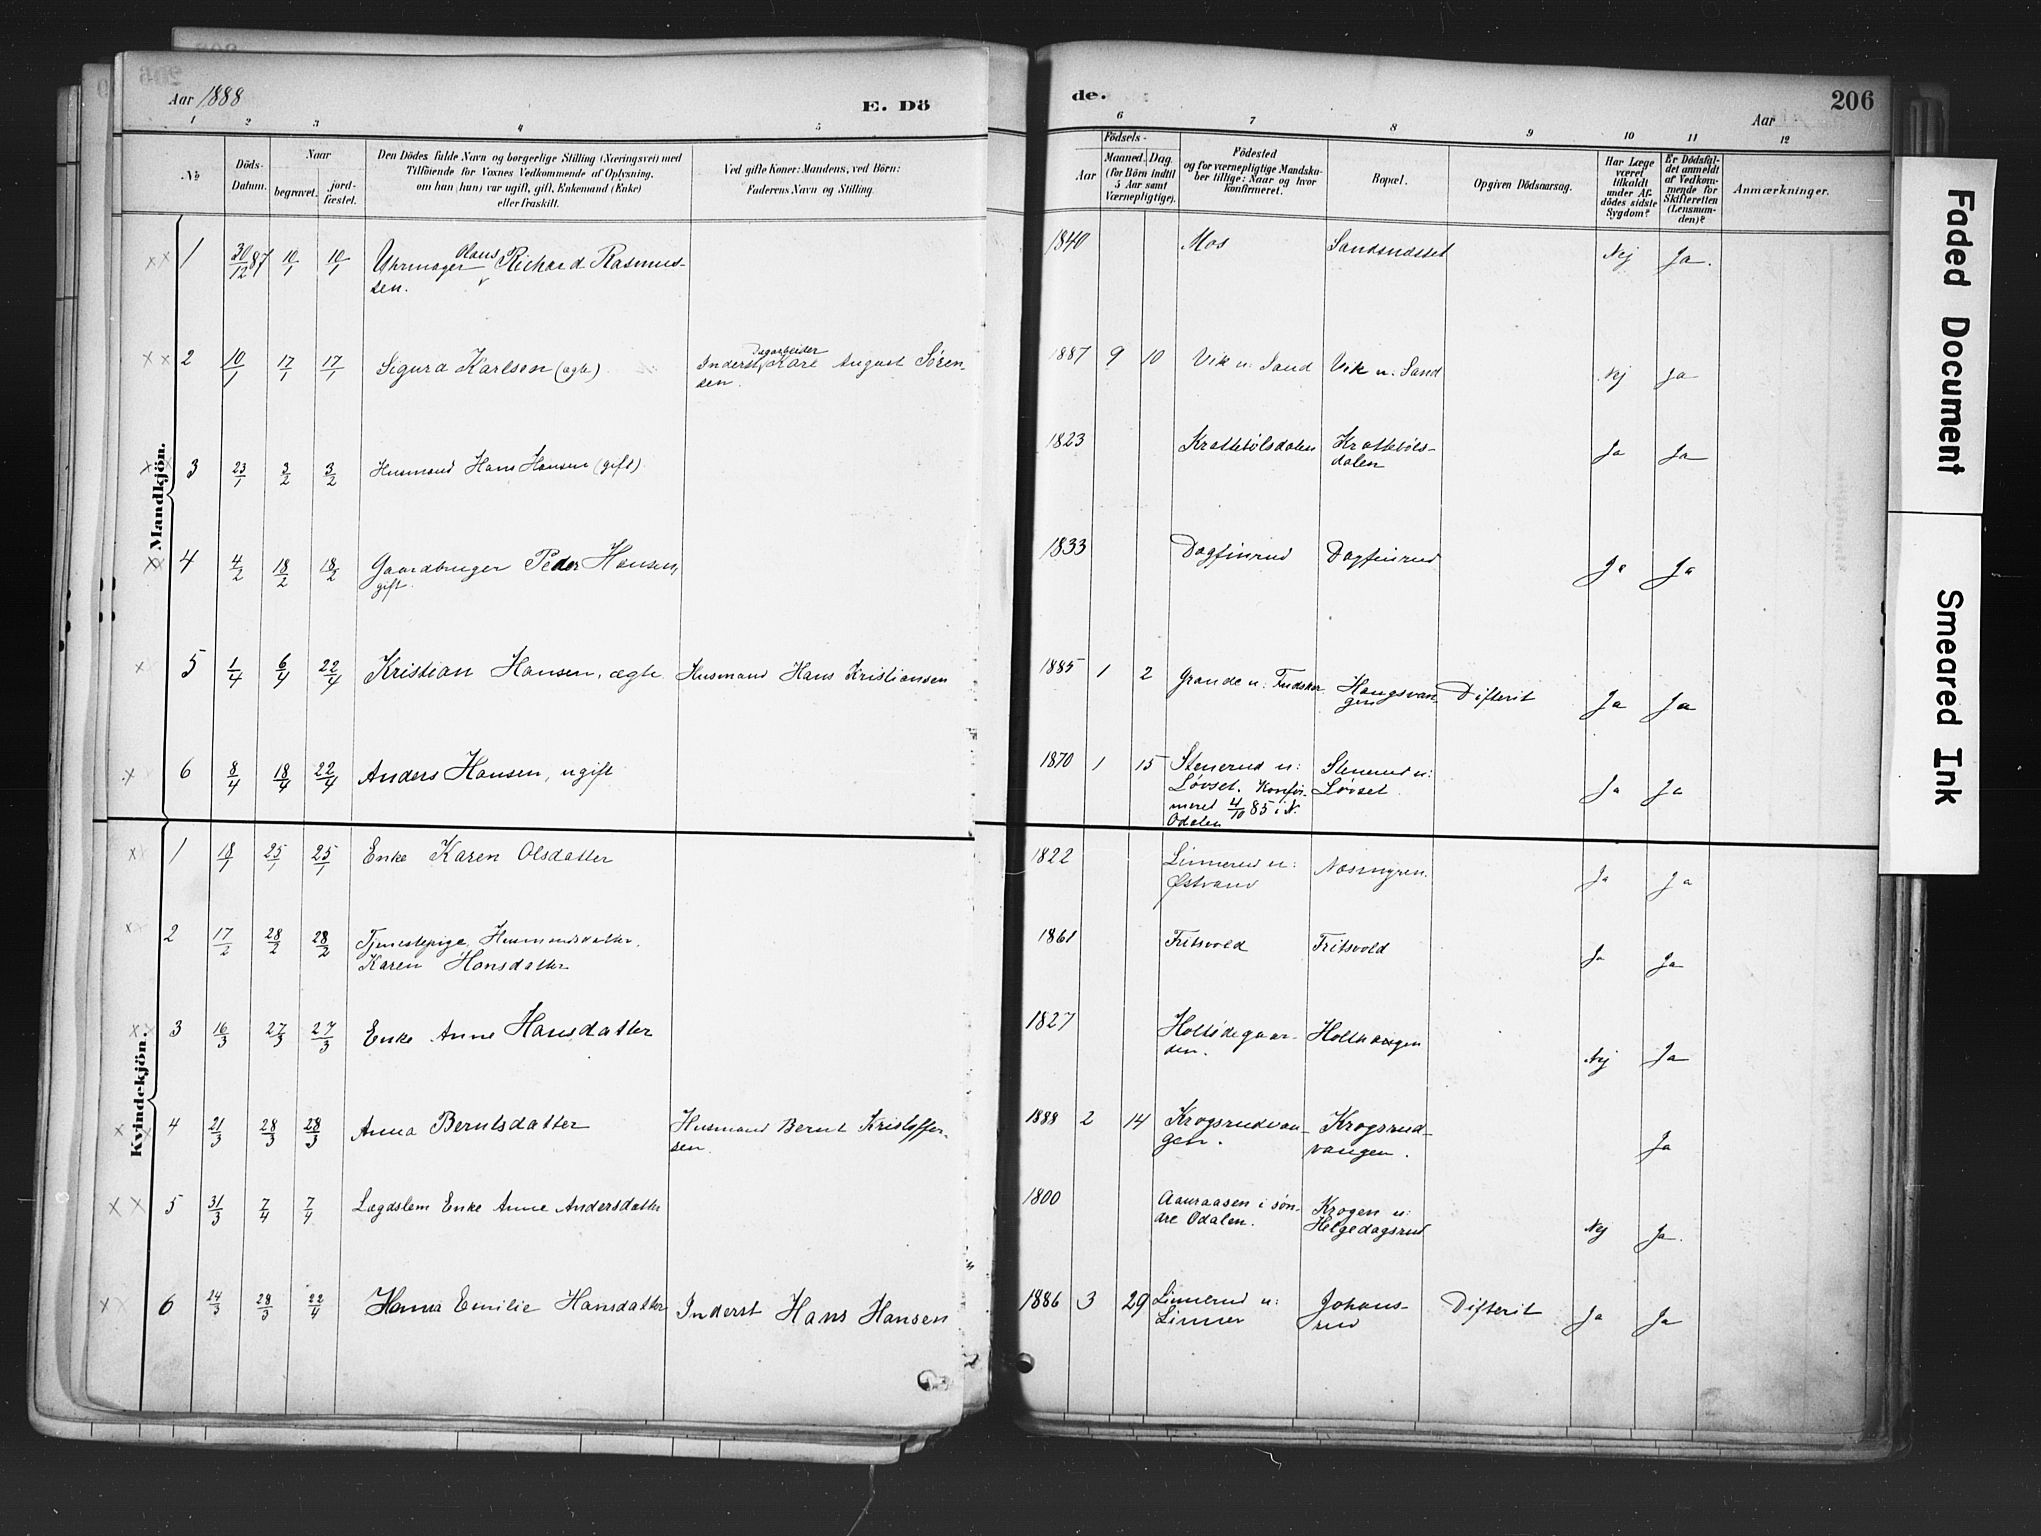 Aar 1888
E. Dö
de.
Aar
206
1 2 3 4 5 6 7 8 9 10 11 12
No
Döds-Datum.
Naar
begravet.
jord-fæstet.
Den Dödes fulde Navn og borgerlige Stilling (Næringsvei) med
Tilföiende for Voxnes Vedkommende af Oplysning,
om han (hun) var ugift, gift, Enkemand (Enke)
eller fraskilt.
Ved gifte Koner: Mandens, ved Börn:
Faderens Navn og Stilling.
Födsels-
Aar
Maaned. Dag.
(for Börn indtil
5 Aar samt
Værnepligtige).
Födested
og for værnepligtige Mandska-
ber tillige: Naar og hvor
konfirmeret.
Bopæl.
Opgiven Dödsaarsag.
Har Læge
været
tilkaldt
under Af-
dödes sidste
Sygdom?
Er Dödsfal-
det anmeldt
af Vedkom-
mende for
Skifteretten
(Lensman-
den)?
Anmærkninger.
Mandkjön.
1 30/12 87 10/1 10/1 Uhrmager Olaus Richard Rasmus-
sen.
1840 Mos Sandsnesset Nej Ja.
2 10/1 17/1 17/1 Sigurd Karlsen (ægte) Inderst, Dagarbeider Karl August Sören-
sen.
1887 9 10 Vik u: Sand Vik u: Sand Nej Ja
3 23/1 3/2 3/2 Husmand Hans Hansen (gift)
1823 Krattebölsdalen Kratteböls-
dalen Ja Ja
4 4/2 18/2 18/2 Gaardbruger Peder Hansen,
gift.
1833 Dagfinrud Dagfinrud Ja Ja
5 1/4 6/4 22/4 Kristian Hansen, ægte Husmand Hans Kristiansen
1885 1 2 Grande u: Haugsvan-
gen Difterit Ja Ja
6 8/4 18/4 22/4 Anders Hansen, ugift
1870 1 15 Stenerud u:
Løvset. Konfir-
meret 4/10 85 i N.
Odalen
Stenerud u:
Løvset Ja Ja
Kvindekjön.
1 18/1 25/1 25/1 Enke Karen Olsdatter
1822 Linnerud u:
Østvand Næsmyren. Ja Ja
2 17/2 28/2 28/2 Tjenestepige, Husmandsdatter,
Karen Hansdatter
1861 Fritsvold Fritsvold Ja Ja
3 16/3 27/3 27/3 Enke Anne Hansdatter
1827 Holtsdegaar-
den. Holthaugen Nej Ja
4 21/3 28/3 28/3 Anna Berntsdatter Husmand Bernt Kristoffer-
sen
1888 2 14 Krogsrudvan-
gen. Krogsrud-
vangen. Ja
5 31/3 7/4 7/4 Lægdslem Enke Anne Andersdatter
1800 Aauraasen i søn-
dre Odalen. Krogen u:
Helgedagsrud Nej Ja.
6 24/3 28/3 22/4 Hanna Emilie Hansdatter Inderst Hans Hansen
1886 3 29 Linnerud u:
Linner Johans-
rud Difterit Ja Ja
Faded Document
Smeared Ink